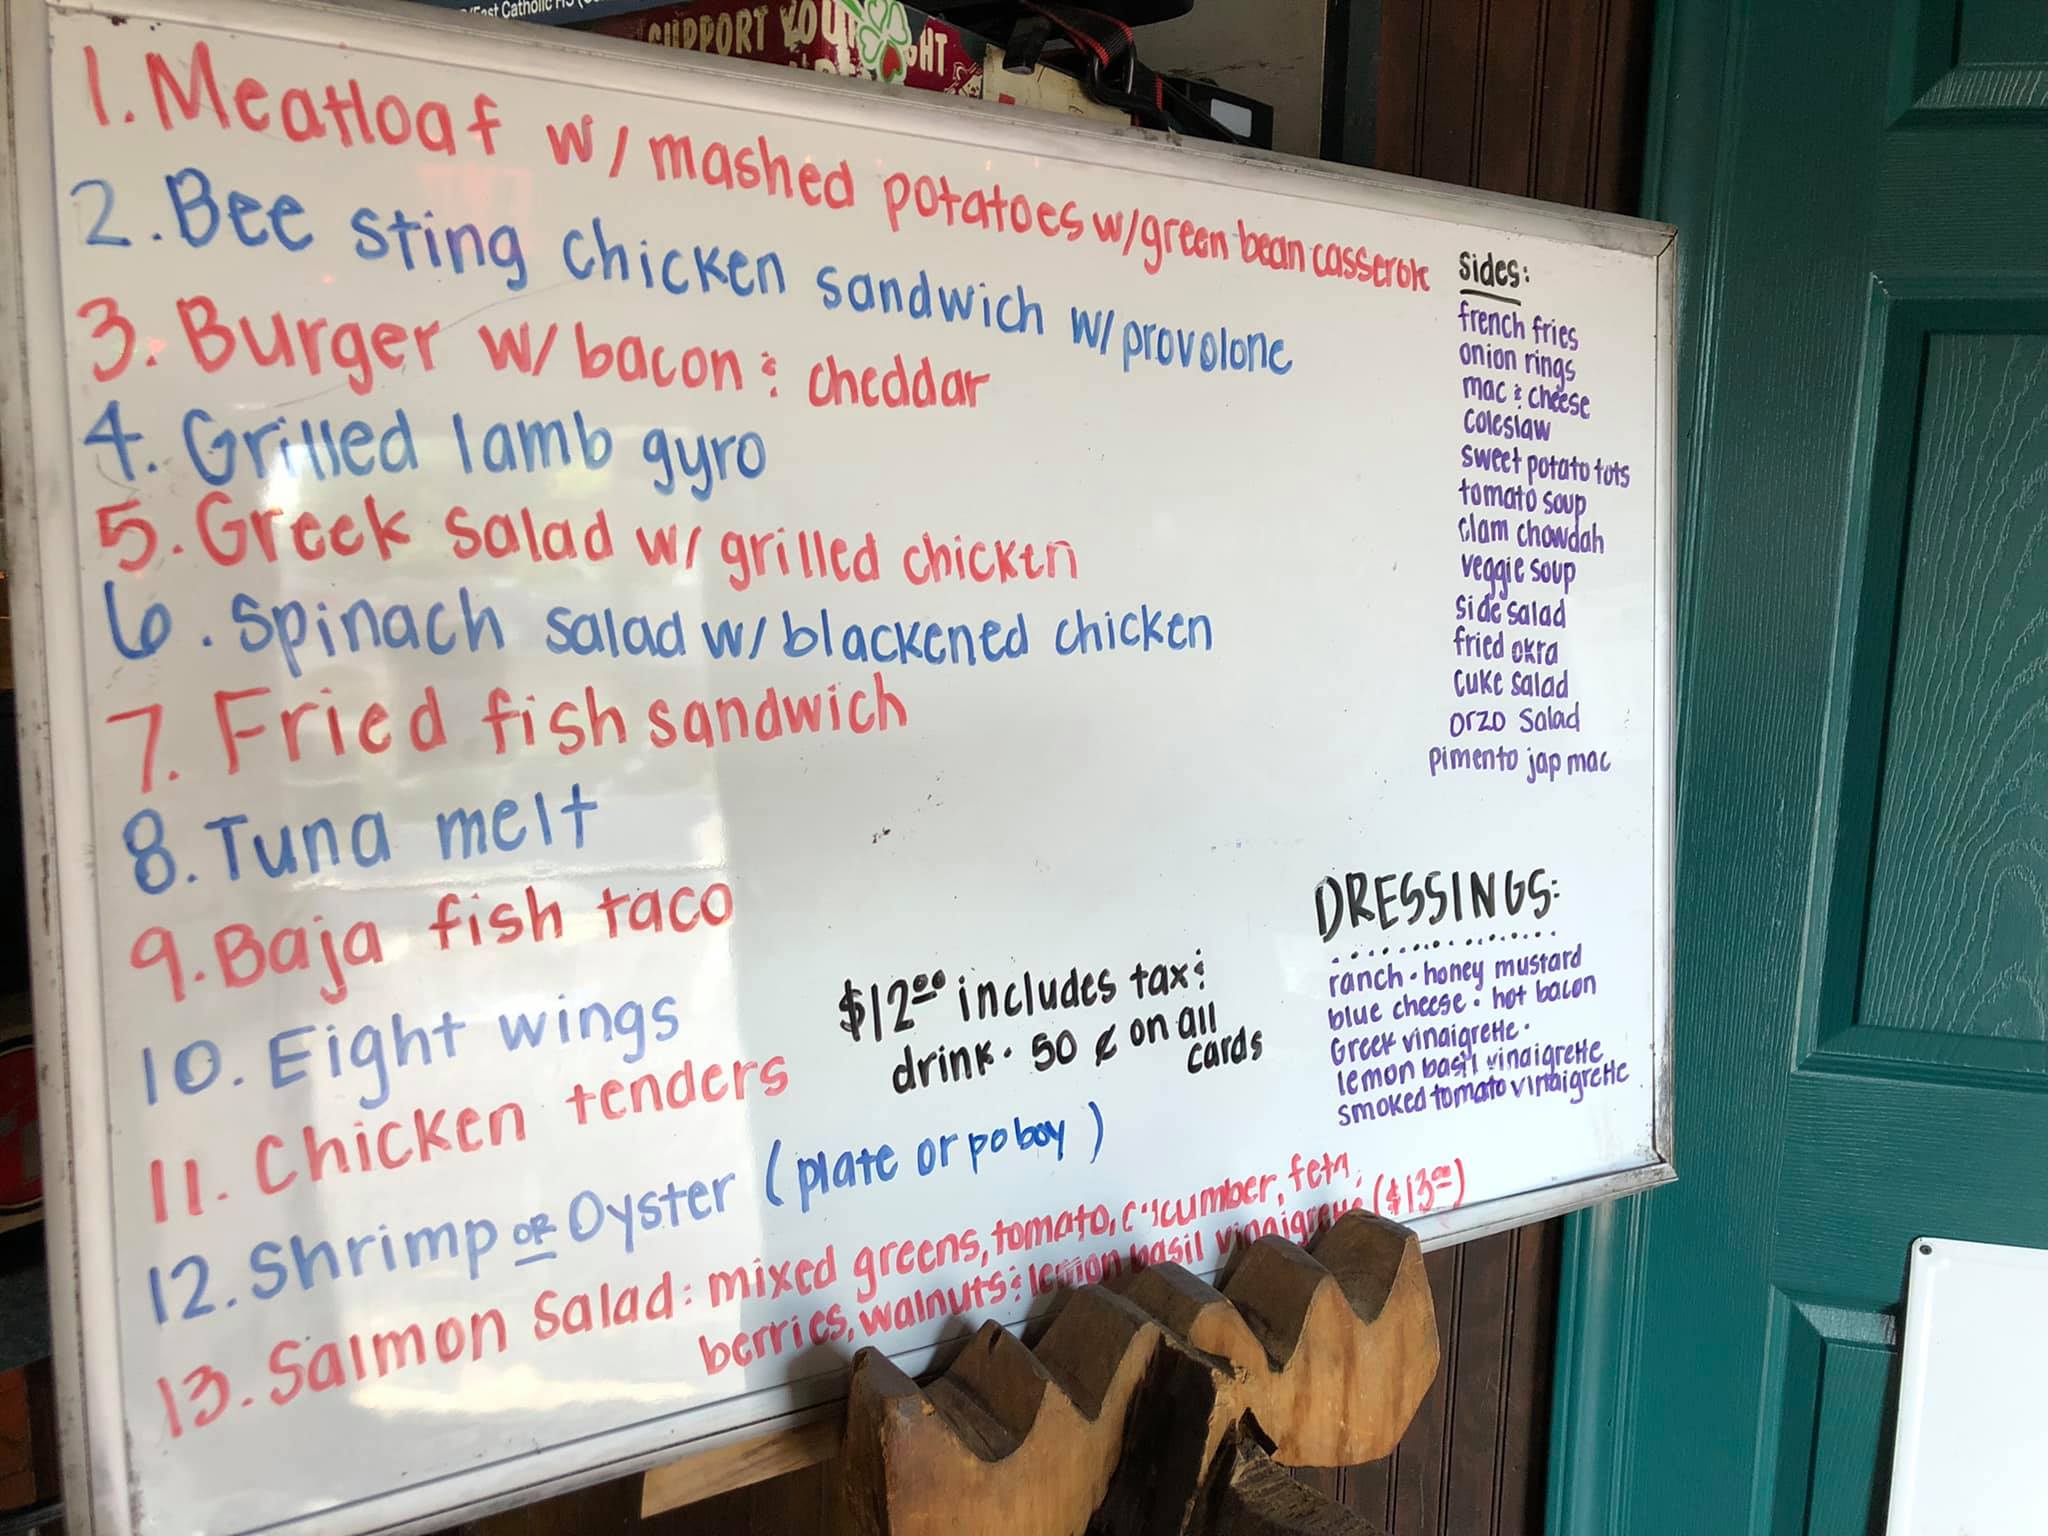 East Catholic HS
SUPPORT YOUR
1. Meatloaf w/ mashed potatoes w/green bean casserole
2. Bee sting chicken sandwich w/ provolone
3. Burger w/ bacon & cheddar
4. Grilled lamb gyro
5. Greek salad w/ grilled chicken
6. Spinach salad w/ blackened chicken
7. Fried fish sandwich
8. Tuna melt
9. Baja fish taco
10. Eight wings
11. Chicken tenders
12. Shrimp OR Oyster (plate or poboy)
13. Salmon Salad: mixed greens, tomato, cucumber, feta,
berries, walnuts & lemon basil vinaigrette ($13.00)
$12.00 includes tax &
drink. 50 ¢ on all
cards
Sides:
french fries
onion rings
mac & cheese
coleslaw
sweet potato tots
tomato soup
clam chowdah
veggie soup
side salad
fried okra
cuke salad
orzo salad
pimento jap mac
DRESSINGS:
ranch • honey mustard
blue cheese • hot bacon
Greek vinaigrette •
lemon basil vinaigrette
smoked tomato vinaigrette